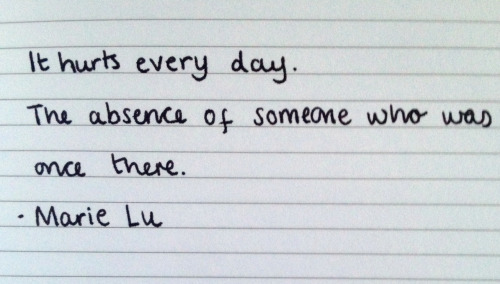 It hurts every day.
The absence of someone who was
once there.
· Marie Lu